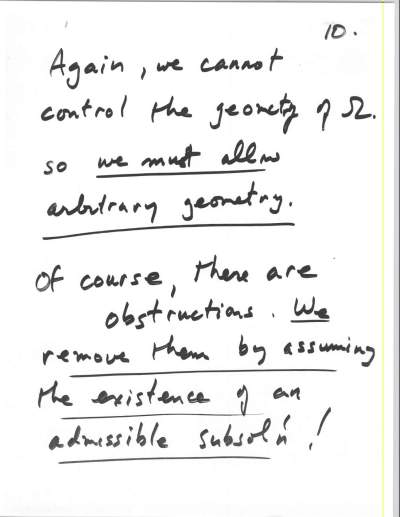 10.
Again, we cannot
control the geometry of Ω.
so we must allow
arbitrary geometry.
Of course, there are
obstructions. We
remove them by assuming
the existence of an
admissible subsol'n!